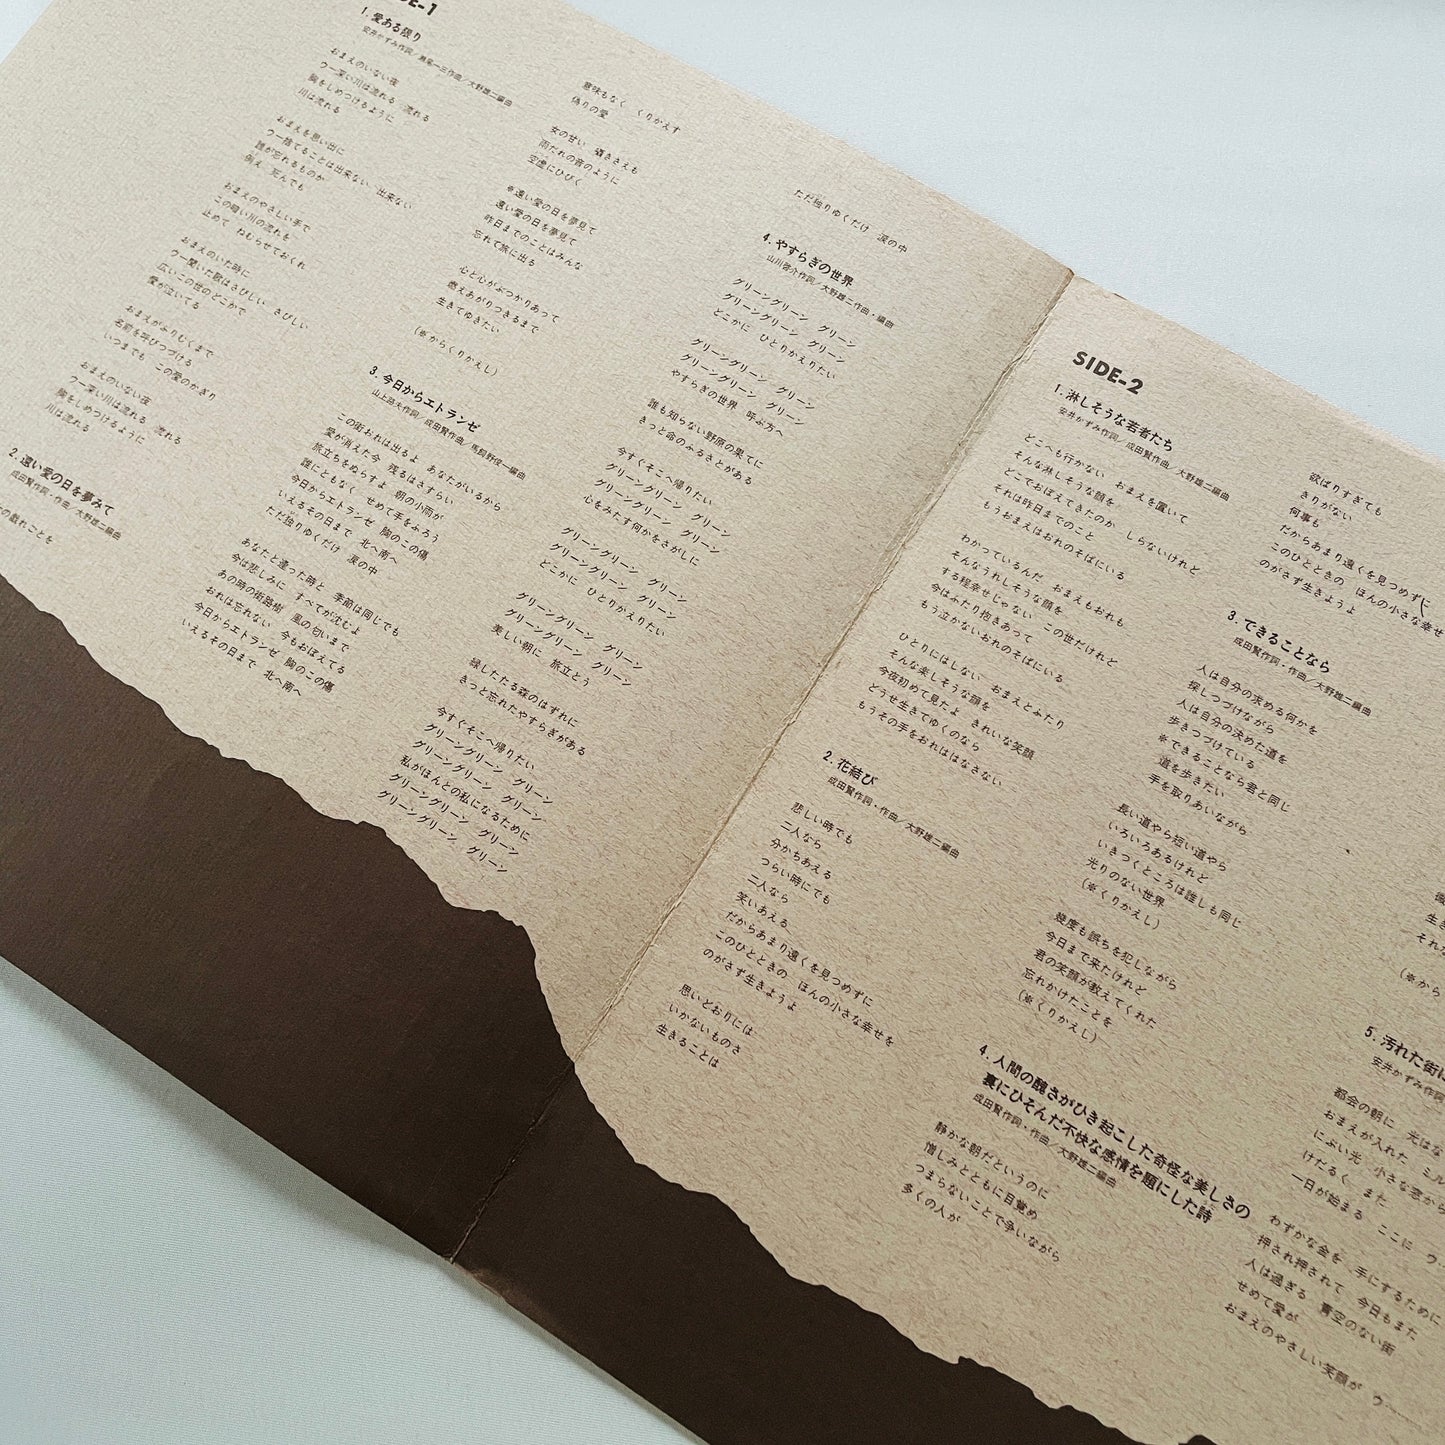 DE-1
1. 愛ある限り
安井かずみ作詞／瀬尾一三作曲／大野雄二編曲
おまえのいない夜
ウー深い川は流れる　流れる
胸をしめつけるように
川は流れる
おまえを思い出に
ウー捨てることは出来ない　出来ない
誰が忘れるものか
例え　死んでも
おまえのやさしい手で
この暗い川の流れを
止めて　ねむらせておくれ
おまえのいた時に
ウー聞いた歌はさびしい　さびしい
広いこの世のどこかで
愛が泣いてる
おまえがふりむくまで
名前を呼びつづける
いつまでも　この愛のかぎり
おまえのいない夜
ウー深い川は流れる　流れる
胸をしめつけるように
川は流れる
2. 遠い愛の日を夢みて
成田賢作詞・作曲／大野雄二編曲
の戯れごとを
意味もなく　くりかえす
偽りの愛
女の甘い　囁きさえも
雨だれの音のように
空虚にひびく
※遠い愛の日を夢見て
遠い愛の日を夢見て
昨日までのことはみんな
忘れて旅に出る
心と心がぶつかりあって
燃えあがりつきるまで
生きてゆきたい
(※からくりかえし)
3. 今日からエトランゼ
山上路夫作詞／成田賢作曲／馬飼野俊一編曲
この街おれは出るよ　あなたがいるから
愛が消えた今　残るはさすらい
旅立ちをぬらすよ　朝の小雨が
誰にともなく　せめて手をふろう
今日からエトランゼ　胸のこの傷
いえるその日まで　北へ南へ
ただ独りゆくだけ　涙の中
あなたと逢った時と　季節は同じでも
今は悲しみに　すべてが沈むよ
あの時の街路樹　風の匂いまで
おれは忘れない　今もおぼえてる
今日からエトランゼ　胸のこの傷
いえるその日まで　北へ南へ
ただ独りゆくだけ　涙の中
4. やすらぎの世界
山川啓介作詞／大野雄二作曲・編曲
グリーングリーン　グリーン
グリーングリーン　グリーン
どこかに　ひとりかえりたい
グリーングリーン　グリーン
グリーングリーン　グリーン
やすらぎの世界　呼ぶ方へ
誰も知らない野原の果てに
きっと命のふるさとがある
今すぐそこへ帰りたい
グリーングリーン　グリーン
グリーングリーン　グリーン
心をみたす何かをさがしに
グリーングリーン　グリーン
グリーングリーン　グリーン
どこかに　ひとりかえりたい
グリーングリーン　グリーン
グリーングリーン　グリーン
美しい朝に　旅立とう
緑したたる森のはずれに
きっと忘れたやすらぎがある
今すぐそこへ帰りたい
グリーングリーン　グリーン
グリーングリーン　グリーン
私がほんとの私になるために
グリーングリーン　グリーン
グリーングリーン　グリーン
SIDE-2
1. 淋しそうな若者たち
安井かずみ作詞／成田賢作曲／大野雄二編曲
どこへも行かない　おまえを置いて
そんな淋しそうな顔を
どこでおぼえてきたのか　しらないけれど
それは昨日までのこと
もうおまえはおれのそばにいる
わかっているんだ　おまえもおれも
そんなうれしそうな顔を
する程幸せじゃない　この世だけれど
今はふたり抱きあって
もう泣かないおれのそばにいる
ひとりにはしない　おまえとふたり
そんな楽しそうな顔を
今夜初めて見たよ　きれいな笑顔
どうせ生きてゆくのなら
もうその手をおれははなさない
2. 花結び
成田賢作詞・作曲／大野雄二編曲
悲しい時でも
二人なら
分かちあえる
つらい時にでも
二人なら
笑いあえる
だからあまり遠くを見つめずに
このひとときの　ほんの小さな幸せを
のがさず生きようよ
思いどおりには
いかないものさ
生きることは
欲ばりすぎても
きりがない
何事も
だからあまり遠くを見つめずに
このひとときの　ほんの小さな幸せ
のがさず生きようよ
3. できることなら
成田賢作詞・作曲／大野雄二編曲
人は自分の求める何かを
探しつづけながら
人は自分の決めた道を
歩きつづけている
※できることなら君と同じ
道を歩きたい
手を取りあいながら
長い道やら短い道やら
いろいろあるけれど
いきつくところは誰しも同じ
光りのない世界
(※くりかえし)
幾度も誤ちを犯しながら
今日まで来たけれど
君の笑顔が教えてくれた
忘れかけたことを
(※くりかえし)
4. 人間の醜さがひき起こした奇怪な美しさの
裏にひそんだ不快な感情を題にした詩
成田賢作詞・作曲／大野雄二編曲
静かな朝だというのに
憎しみとともに目覚め
つまらないことで争いながら
多くの人が
生き
それな
(※から
5. 汚れた街に
安井かずみ作詞
都会の朝に　光はな
おまえが入れた　ミル
にぶい光　小さな窓から
けだるく　また
一日が始まる　ここに　ウー
わずかな金を　手にするために
押され押されて　今日もまた
人は過ぎる　青空のない街
せめて愛が
おまえのやさしい笑顔が　ウー